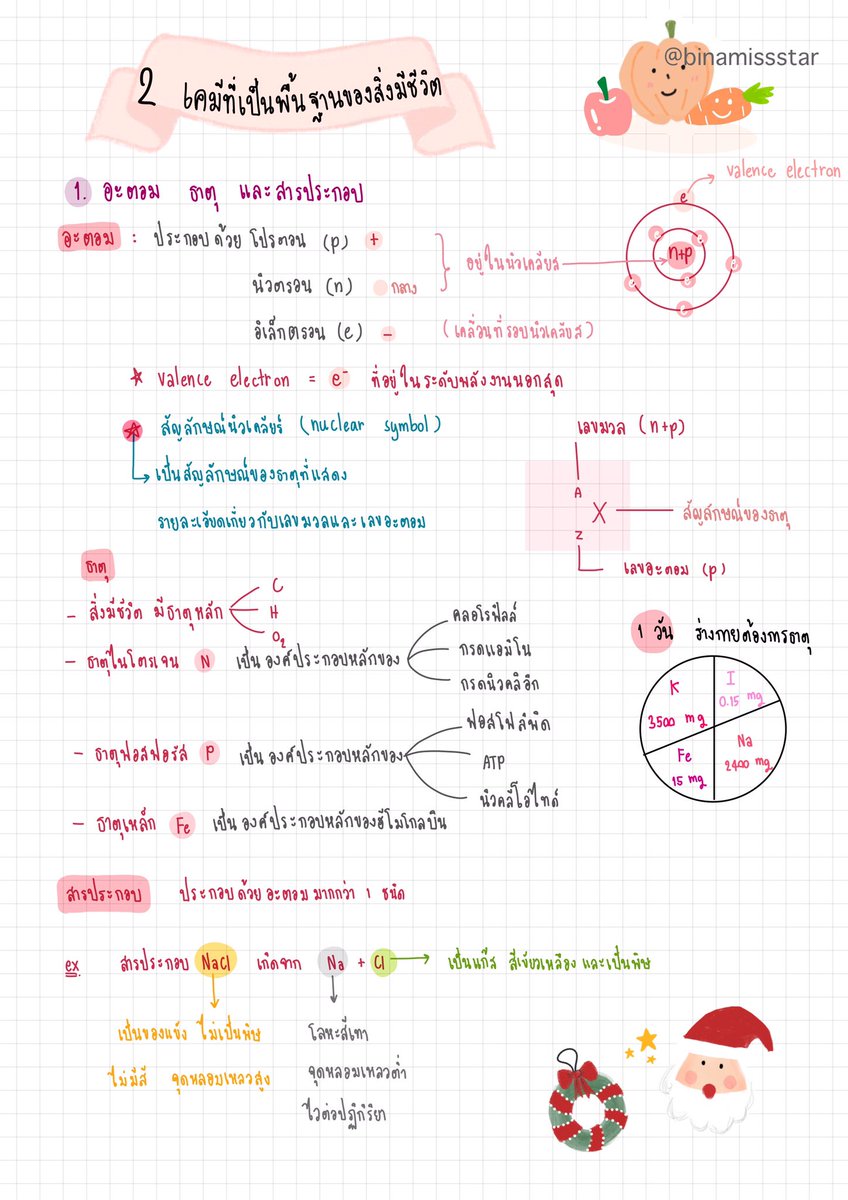 @binamissstar
2 เคมีที่เป็นพื้นฐานของสิ่งมีชีวิต
1. อะตอม ธาตุ และสารประกอบ
valence electron
อะตอม : ประกอบด้วย โปรตอน (p) +
นิวตรอน (n) กลาง
อิเล็กตรอน (e) -
อยู่ในนิวเคลียส
(เคลื่อนที่รอบนิวเคลียส)
e
e e
n+p
e e
e e
e
☆ Valence electron = e⁻ ที่อยู่ในระดับพลังงานนอกสุด
☆ สัญลักษณ์นิวเคลียร์ (nuclear symbol)
เป็นสัญลักษณ์ของธาตุที่แสดง
รายละเอียดเกี่ยวกับเลขมวลและเลขอะตอม
เลขมวล (n+p)
A
X
สัญลักษณ์ของธาตุ
Z
เลขอะตอม (p)
ธาตุ
- สิ่งมีชีวิต มีธาตุหลัก
C
H
O₂
- ธาตุไนโตรเจน N เป็นองค์ประกอบหลักของ
คลอโรฟิลล์
กรดแอมิโน
กรดนิวคลิอิก
- ธาตุฟอสฟอรัส P เป็นองค์ประกอบหลักของ
ฟอสโฟลิพิด
ATP
นิวคลีโอไทด์
- ธาตุเหล็ก Fe เป็นองค์ประกอบหลักของฮีโมโกลบิน
1 วัน ร่างกายต้องการธาตุ
K
3500 mg
I
0.15 mg
Fe
15 mg
Na
2400 mg
สารประกอบ ประกอบด้วยอะตอมมากกว่า 1 ชนิด
ex สารประกอบ NaCl เกิดจาก Na + Cl เป็นแก๊ส สีเขียวเหลือง และเป็นพิษ
เป็นของแข็ง ไม่เป็นพิษ
ไม่มีสี จุดหลอมเหลวสูง
โลหะสีเทา
จุดหลอมเหลวต่ำ
ไวต่อปฏิกิริยา